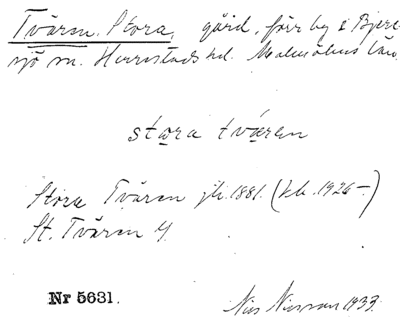 Tvären, Stora, gård, förr by i Bjere-
sjö sn. Herrestads hd. Malmöhus län.
stọra tvạ̈ren
Stora Tvären jb. 1881. (kb. 1926–.)
St. Tvären 4
Nr 5631.
Nils Nilsson 1933.